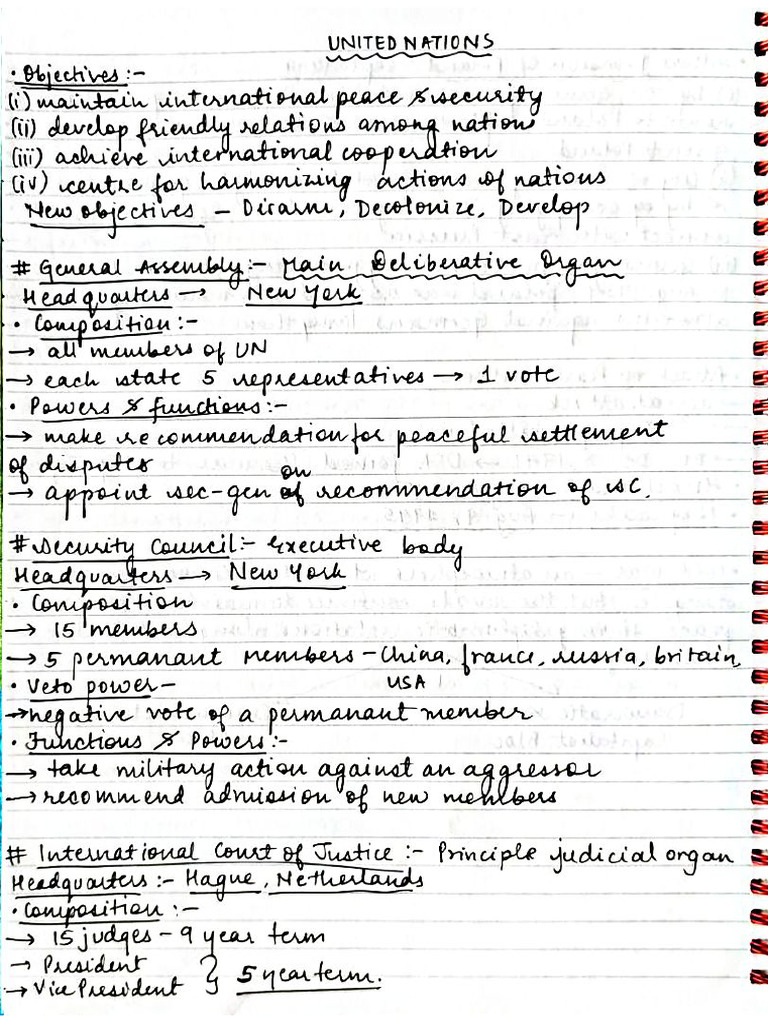 UNITED NATIONS
• Objectives :-
(i) maintain international peace & security
(ii) develop friendly relations among nations
(iii) achieve international cooperation
(iv) centre for harmonizing actions of nations
New objectives - Disarm, Decolonize, Develop
# General Assembly:- Main Deliberative Organ
Headquarters → New York
• Composition :-
→ all members of UN
→ each state 5 representatives → 1 vote
• Powers & functions:-
→ make recommendation for peaceful settlement
of disputes
→ appoint sec-gen on recommendation of SC.
# Security Council:- Executive body
Headquarters → New York
• Composition
→ 15 members
→ 5 permanant members - China, france, russia, britain,
USA
• Veto power -
→ negative vote of a permanant member
• Functions & Powers:-
→ take military action against an aggressor
→ recommend admission of new members
# International Court of Justice :- Principle judicial organ
Headquarters :- Hague, Netherlands
• Composition :-
→ 15 judges - 9 year term
→ President
→ Vice President } 5 year term.